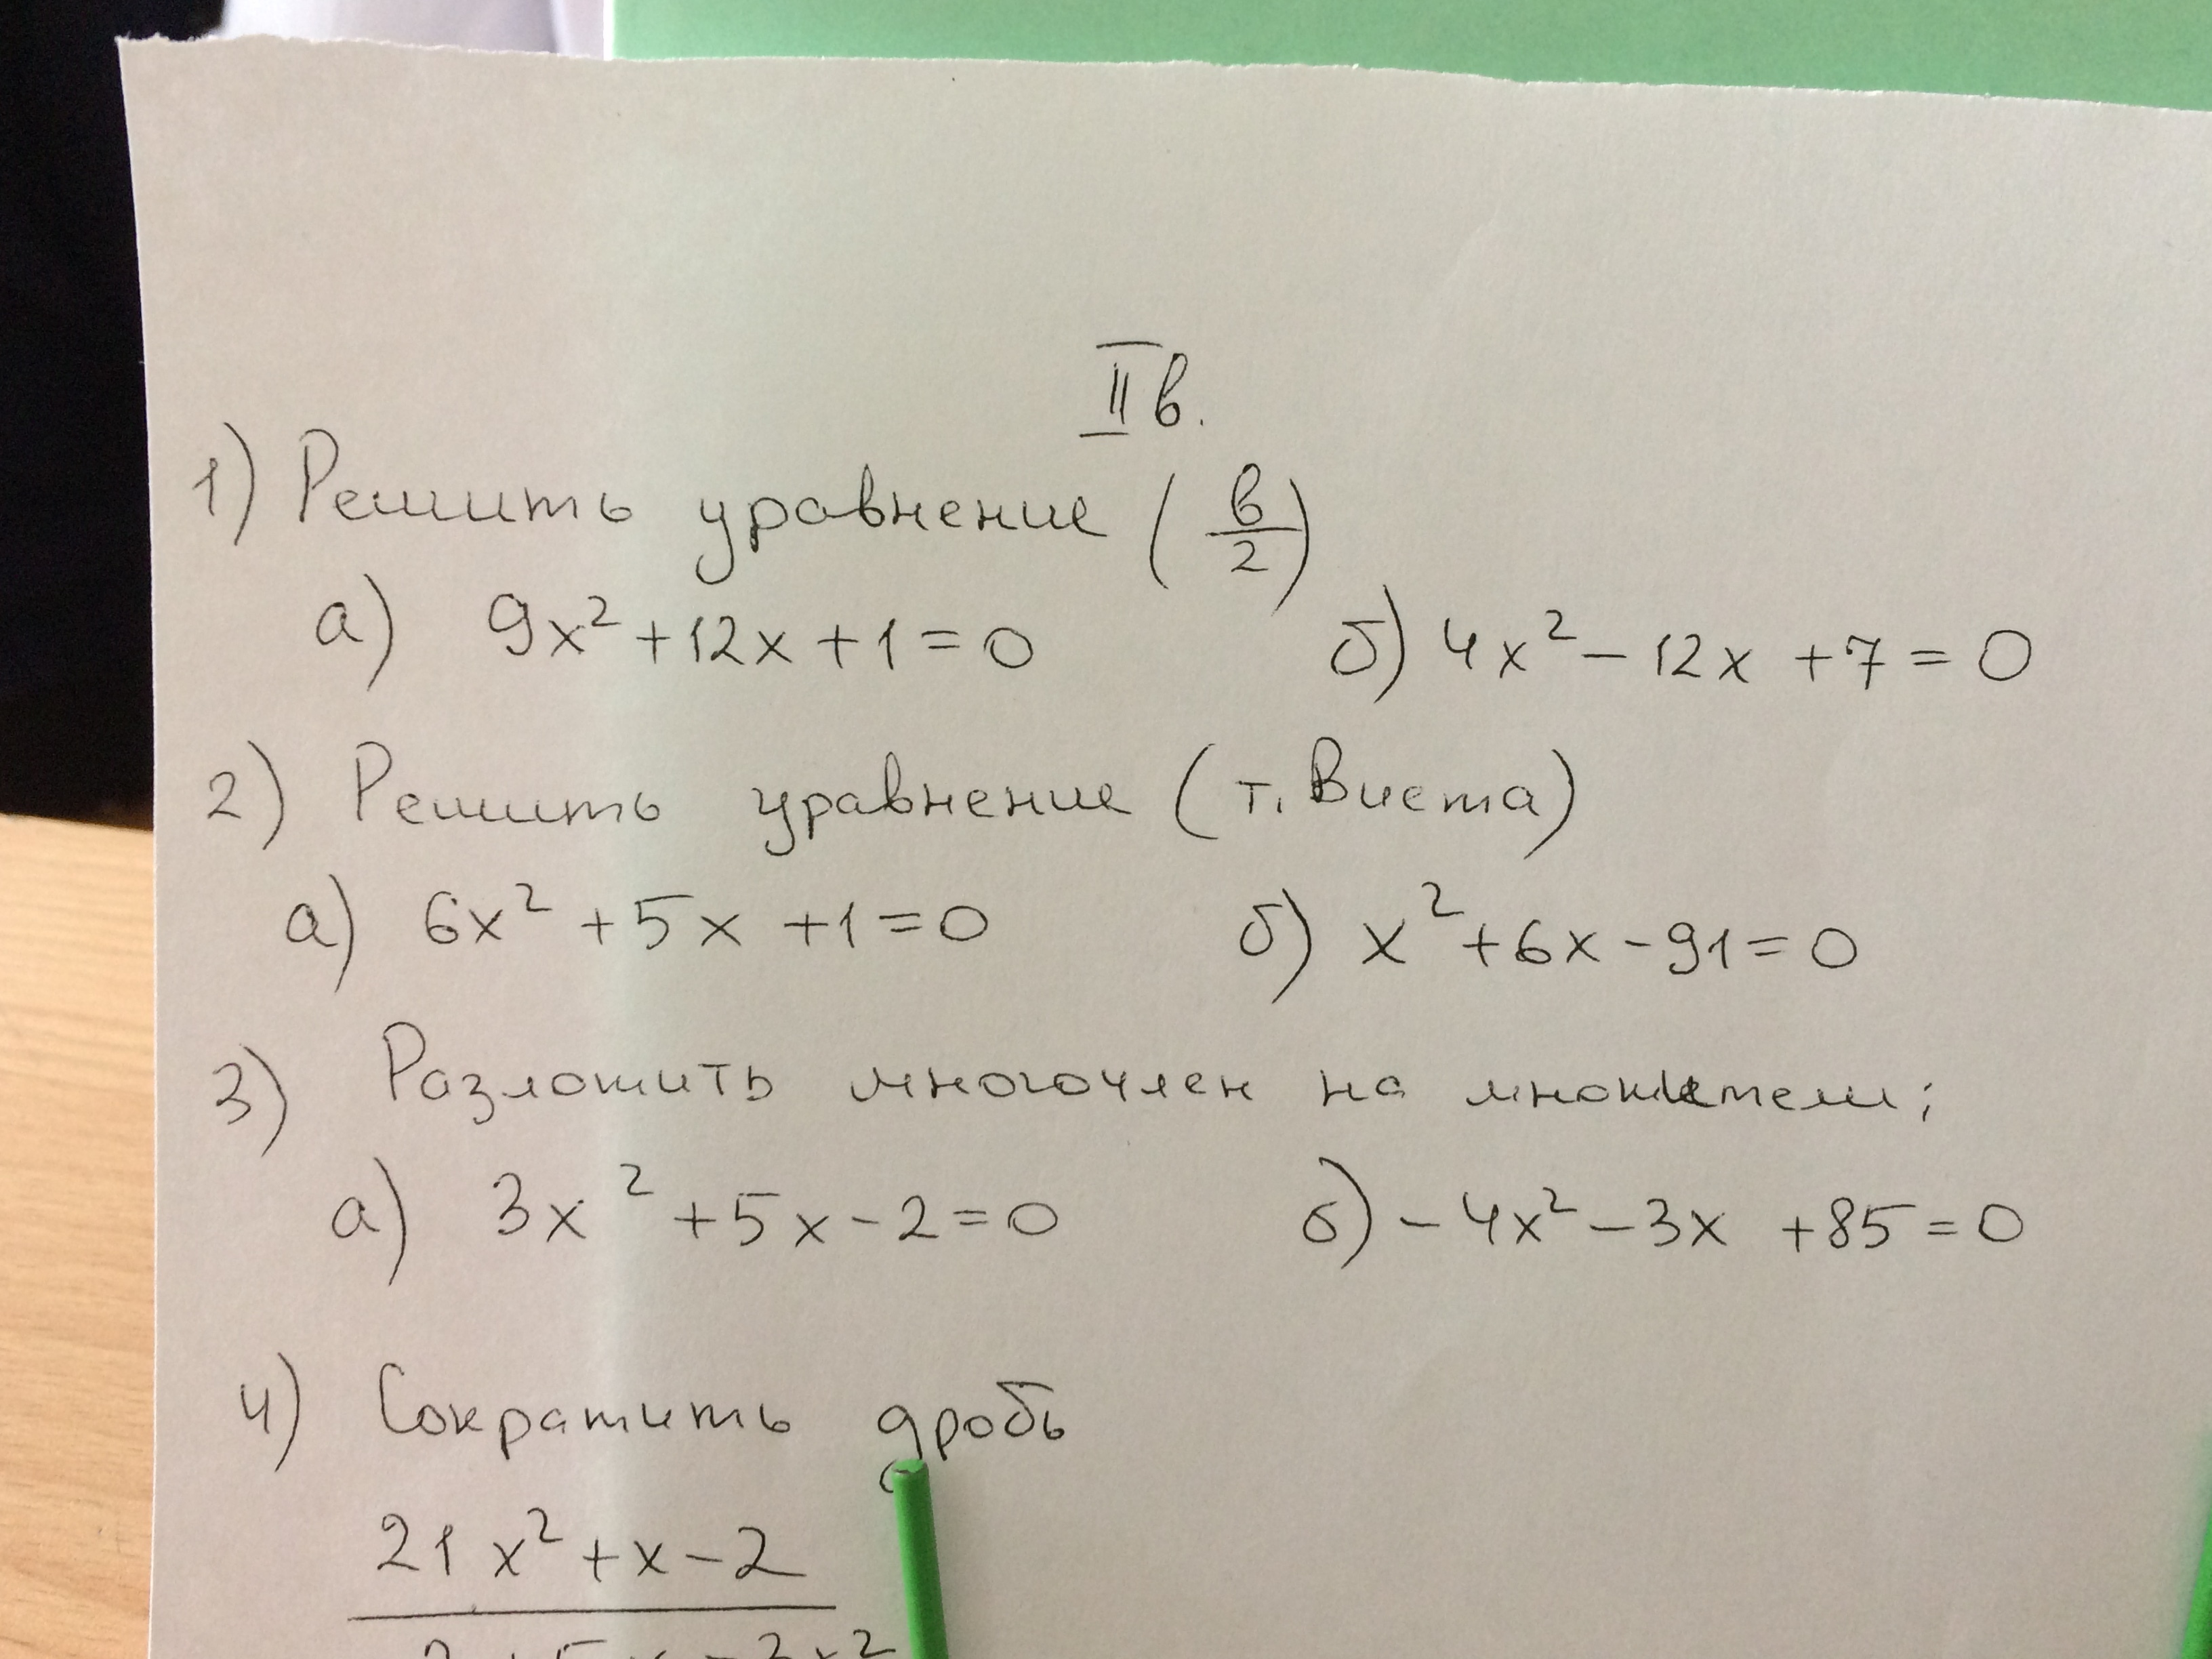 II в.
1) Решить уравнение (в/2)
а) 9x² + 12x + 1 = 0 б) 4x² – 12x + 7 = 0
2) Решить уравнение (т. Виета)
а) 6x² + 5x + 1 = 0 б) x² + 6x – 91 = 0
3) Разложить многочлен на множители;
а) 3x² + 5x – 2 = 0 б) – 4x² – 3x + 85 = 0
4) Сократить дробь
21x² + x – 2